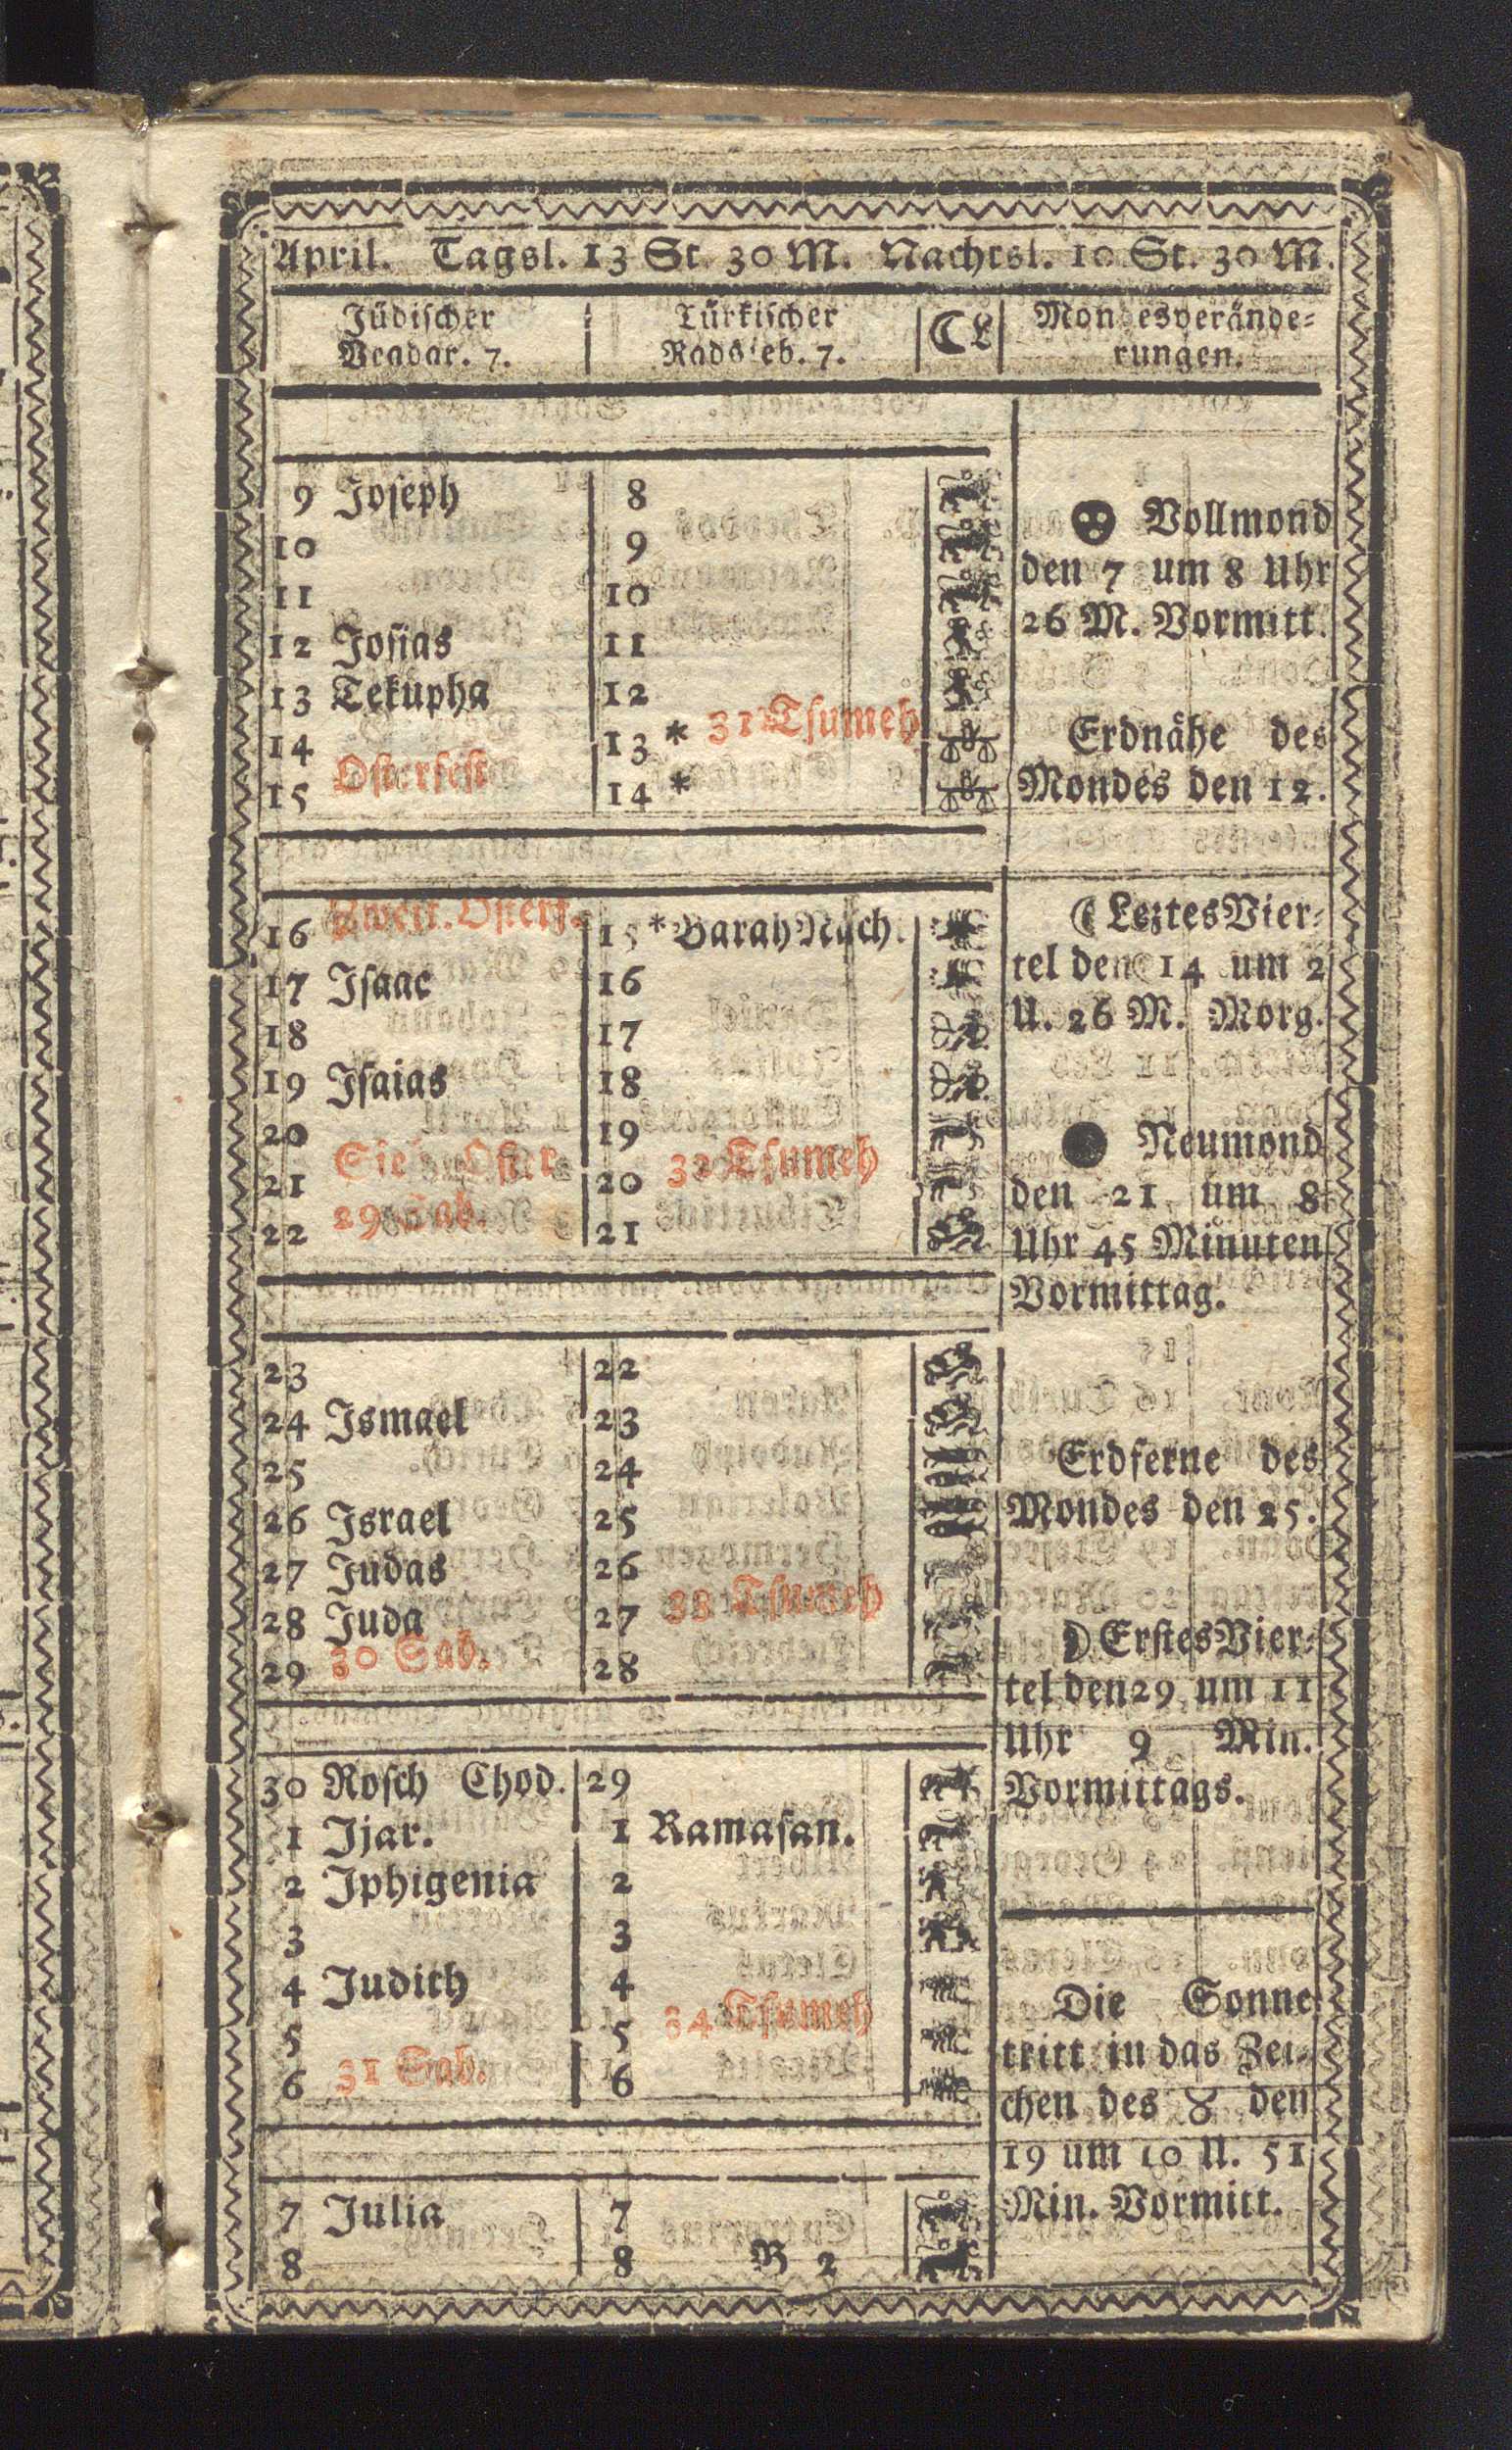 April. Tagsl. 13 St. 30 M. Nachtsl. 10 St. 30 M.
Jüdischer
Veadar. 7.
Türkischer
Radsjeb. 7.
☾ L
Mondesverände-
rungen.
9 Joseph 8
10 9
11 10
12 Josias 11
13 Tekupha 12
31 Tsumeh
14 13 *
Osterfest
15 14 *
Zweit. Osterf.
16 15 * Barah Nach.
17 Isaac 16
18 17
19 Isaias 18
20 19
Oster
32 Tsumeh
21 20
29 Sab.
22 21
23 22
24 Ismael 23
25 24
26 Israel 25
27 Judas 26
33 Tsumeh
28 Juda 27
30 Sab.
29 28
30 Rosch Chod. 29
1 Ijar. 1 Ramasan.
2 Iphigenia 2
3 3
4 Judith 4
34 Tsumeh
5 5
31 Sab.
6 6
7 Julia 7
8 8
B 2
Vollmond
den 7 um 8 Uhr
26 M. Vormitt.
Erdnähe des
Mondes den 12.
☾ Leztes Vier-
tel den 14 um 2
U. 26 M. Morg.
● Neumond
den 21 um 8
Uhr 45 Minuten
Vormittag.
Erdferne des
Mondes den 25.
☽ Erstes Vier-
tel den 29 um 11
Uhr 9 Min.
Vormittags.
Die Sonne
tritt in das Zei-
chen des ♉ den
19 um 10 U. 51
Min. Vormitt.